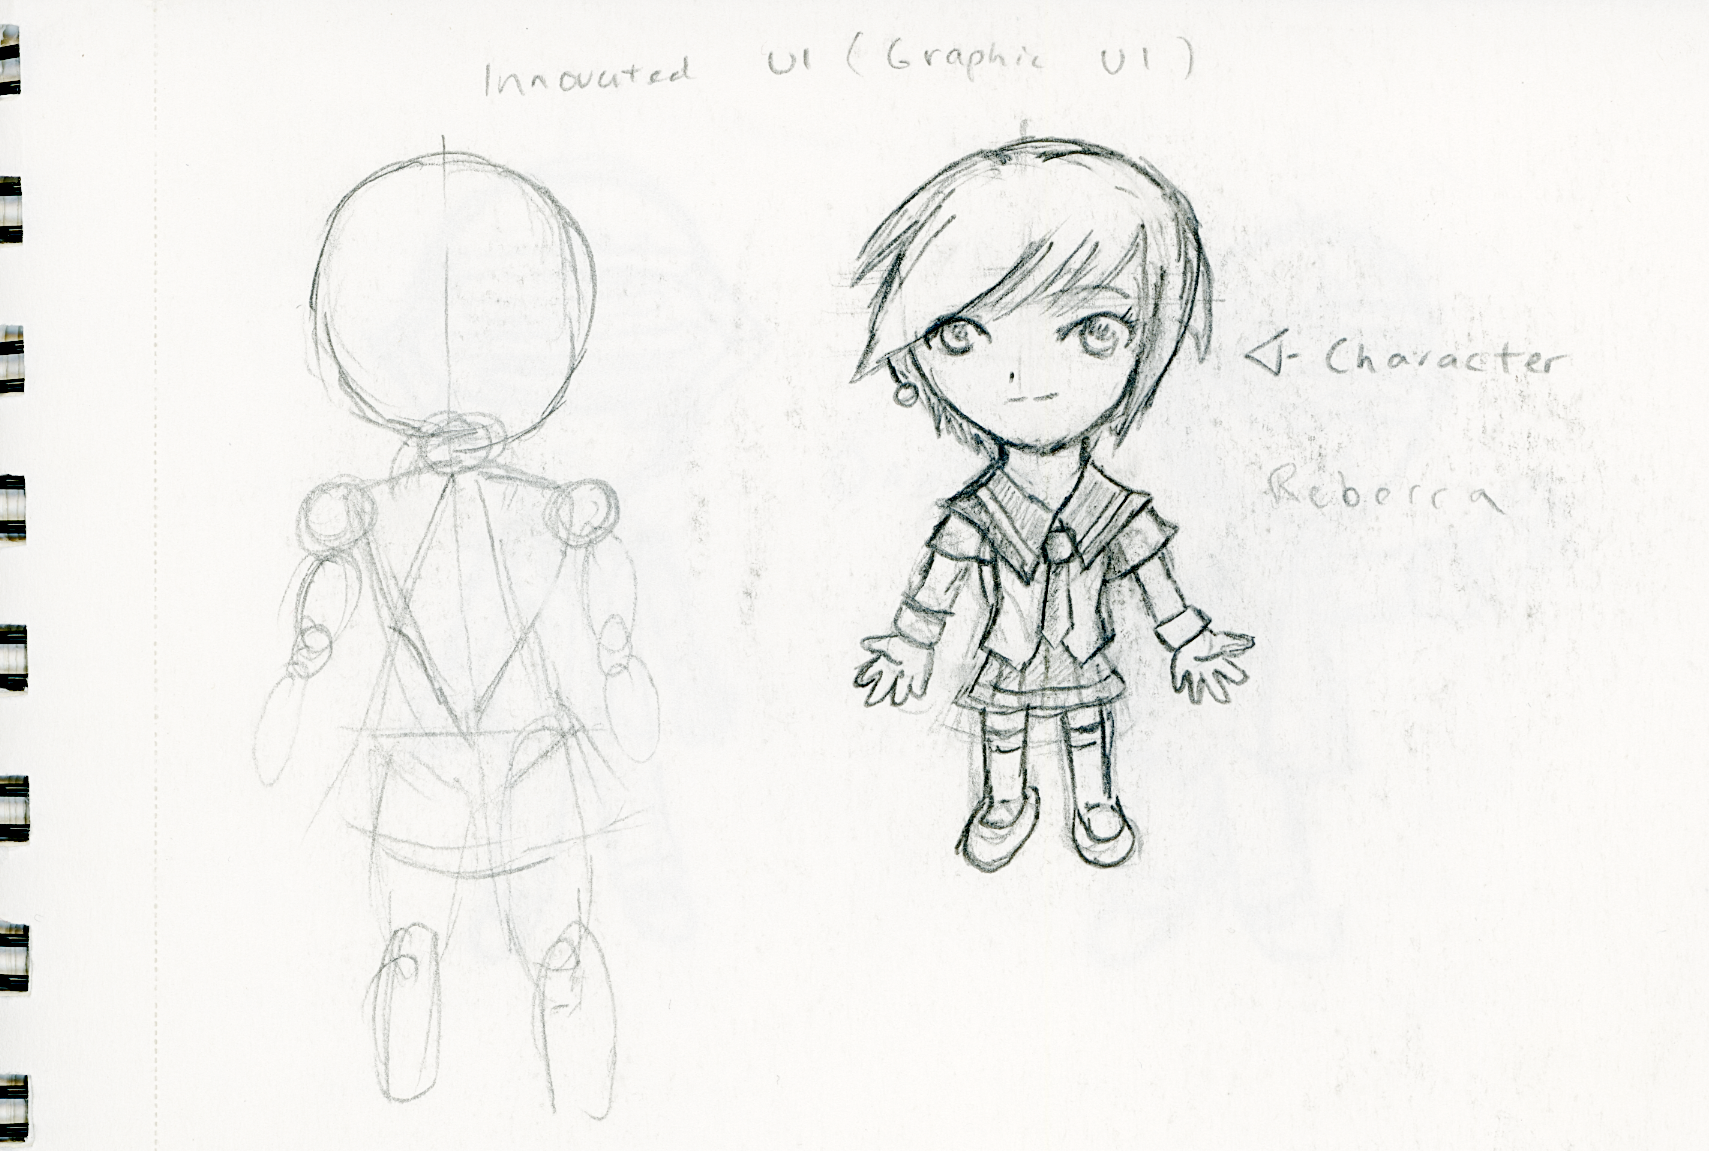 Innovated UI (Graphic UI)
Character
Rebecca